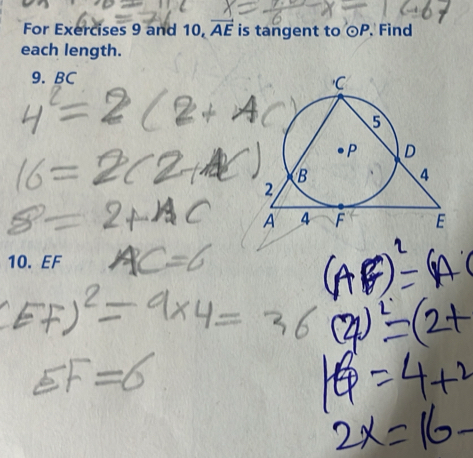 For Exercises 9 and 10, AE is tangent to ⊙P. Find
each length.
9. BC
4² = 2(2 + AC)
16 = 2(2 + AC)
8 = 2 + AC
AC = 6
C
5
P
D
2
B
4
A 4 F E
10. EF
(EF)² = 9x4 = 36
EF = 6
(AF)² = (A
(4)² = (2+
16 = 4+2
2x = 16-